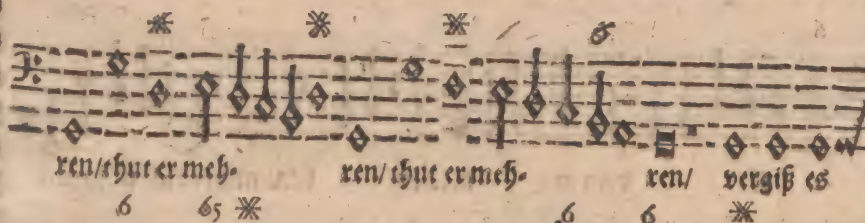 6
ren/thut er meh- ren/ thut er meh- ren/ vergiß es
6 65 6 6